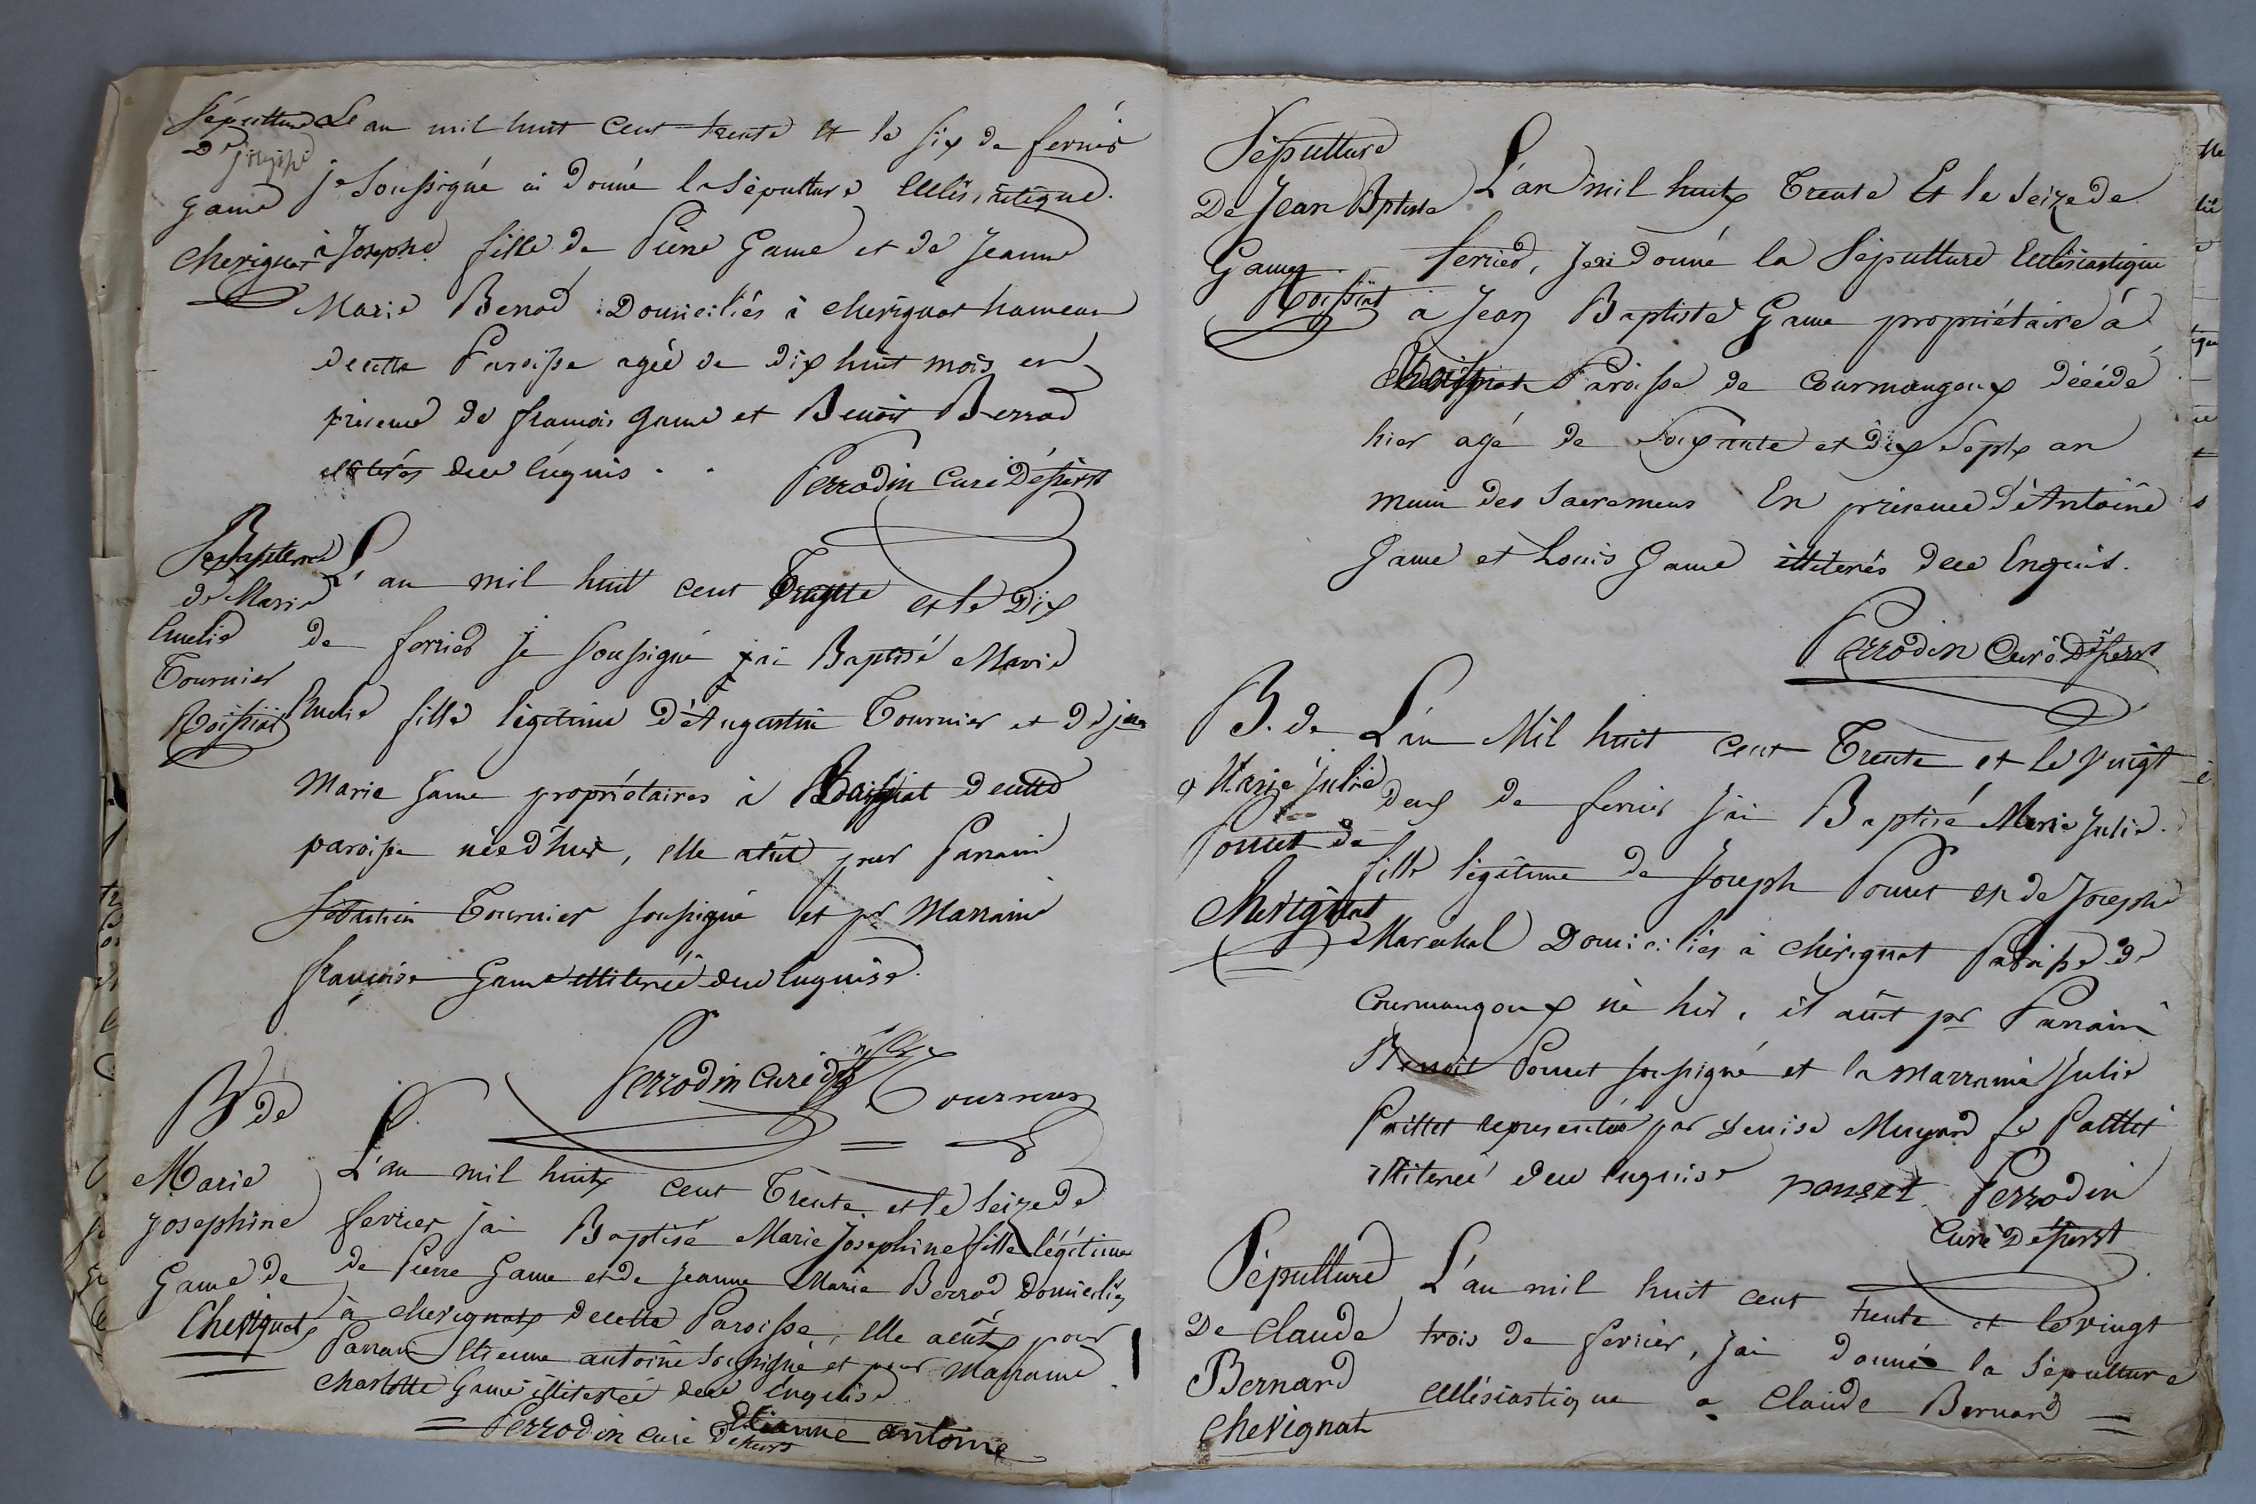 Sépulture
De Josephe
Game
Cherignat
Le an mil huit cent trente et le six de fevrier
je soussigné ai donné la sépulture Ecclésiastique
à Josephe fille de Pierre Game et de Jeanne
Marie Berrod Domiciliés à cherignat hameau
de cette Paroisse agée de dix huit mois en
présence de françois Game et Benoit Berrod
illiterés de ce enquis
Perrodin Curé Dépierst
Baptême
de Marie
Emelie
Tournier
Roissiat
L'an mil huit cent Trente et le Dix
de fevrier je soussigné j'ai Baptisé Marie
Emelie fille légitime d'Augustin Tournier et de
Marie Game propriétaires à Roissiat de cette
paroisse née d'hier, elle a eut pour Parrain
Tournier soussigné et pr Marraine
françoise Game illiterée de ce enquise
Perrodin curé Tournier
B de
Marie
Josephine
Game de
Chevignat
L'an mil huit cent Trente et le Seize de
fevrier j'ai Baptisé Marie Josephine fille légitime
de Pierre Game et de Jeanne Marie Berrod Domiciliés
à chevignat de cette Paroisse, elle a eût pour
Parrain Etienne antoine Soussigné et pour Marraine
Charlotte Game illiterée de ce Enquise
Perrodin curé Etianne antoine
Sépulture
De Jean Bptiste
Game
Roissiat
L'an mil huit Trente Et le Seize de
fevrier, j'ai donné la Sépulture Ecclésiastique
à Jean Baptiste Game propriétaire à
Roissiat Paroisse de Courmangoux décédé
hier agé de Soixante et dix Sept an
muni des Sacremens En présence d'Antoine
Game et Louis Game illiterés de ce Enquis.
Perrodin Curé
B. de
Marie Julie
Pouset de
Cherignat
L'an Mil huit cent Trente et le vingt
deux de fevrier j'ai Baptisé Marie Julie
fille légitime de Joseph Pouset et de Josephe
Marechal Domiciliés à cherignat Paroisse de
Courmangoux né hier, il a eut pr Parrain
Benoit Pouset soussigné et la Marraine Julie
Paillet representée par Denise Mugard
illiterée de ce enquise pouset Perrodin
Curé
Sépulture
De Claude
Bernard
Chevignat
L'an mil huit cent trente et le vingt
trois de fevrier, j'ai donné la Sépulture
ecclésiastique a Claude Bernard =